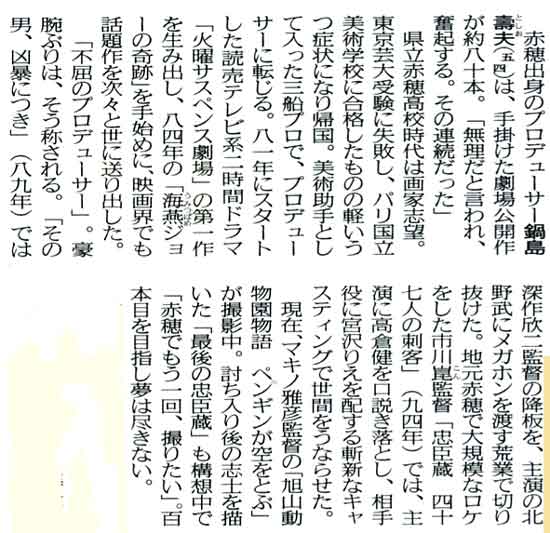 赤穂出身のプロデューサー鍋島
壽夫(五四)は、手掛けた劇場公開作
が約八十本。「無理だと言われ、
奮起する。その連続だった」
県立赤穂高校時代は画家志望。
東京芸大受験に失敗し、パリ国立
美術学校に合格したものの軽いう
つ症状になり帰国。美術助手とし
て入った三船プロで、プロデュー
サーに転じる。八一年にスタート
した読売テレビ系二時間ドラマ
「火曜サスペンス劇場」の第一作
を生み出し、八四年の「海燕ジョ
ーの奇跡」を手始めに、映画界でも
話題作を次々と世に送り出した。
「不屈のプロデューサー」。豪
腕ぶりは、そう称される。「その
男、凶暴につき」(八九年)では
深作欣二監督の降板を、主演の北
野武にメガホンを渡す荒業で切り
抜けた。地元赤穂で大規模なロケ
をした市川崑監督「忠臣蔵 四十
七人の刺客」(九四年)では、主
演に高倉健を口説き落とし、相手
役に宮沢りえを配する斬新なキャ
スティングで世間をうならせた。
現在、マキノ雅彦監督の「旭山動
物園物語 ペンギンが空をとぶ」
が撮影中。討ち入り後の志士を描
いた「最後の忠臣蔵」も構想中で
「赤穂でもう一回、撮りたい」。百
本目を目指し夢は尽きない。